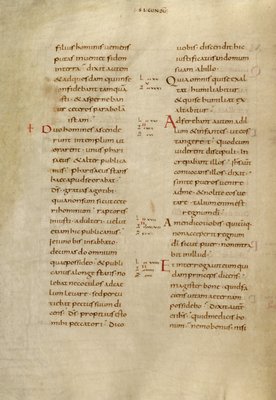 filius hominis veniens
putas inveniet fidem
in terra · dixit autem
& ad quosdam qui in se
confidebant tamquam
iusti · & aspernaban
tur ceteros parabola
istam ·
Duo homines ascende
runt in templum ut
orarent · unus phari
saeus & alter publica
nus · pharisaeus stans
haec apud se orabat ·
d̅s̅ gratias ago tibi
quia non sum sicut cete
ri hominum · raptores
iniusti · adulteri · velut
etiam hic publicanus ·
Ieiuno bis in sabbato ·
decimas do omnium
quae possideo · & publi
canus a longe stans · no
lebat nec oculos ad cae
lum levare · sed percu
tiebat pectus suum di
cens · d̅s̅ propitius esto
mihi peccatori · dico
vobis · descendit hic
iustificatus in domum
suam ab illo ·
Quia omnis qui se exal
tat humiliabitur ·
& qui se humiliat ex
altabitur ·
Adferebant autem ad il
lum & infantes · ut eos
tangeret · quod cum
viderent discipuli · in
crepabant illos · i̅h̅s̅ autem
convocans illos · dixit
sinite pueros venire
ad me · & nolite eos ve
tare · talium enim est
regnum d̅i̅
Amen dico vobis · quicum
que non acceperit regnum
d̅i̅ sicut puer · non intra
bit in illud ·
Et interrogavit eum qui
dam princeps dicens ·
magister bone · quid fa
ciens vitam aeternam
possidebo · dixit autem
ei i̅h̅s̅ · quid me dicis bo
num · nemo bonus nisi